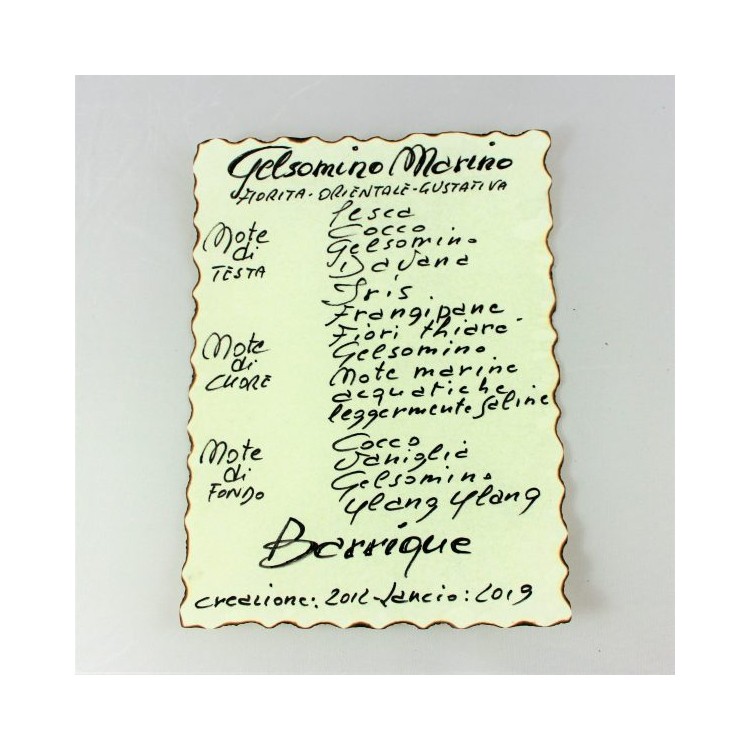 Gelsomino Marino
FIORITA - ORIENTALE - GUSTATIVA
Note
di
TESTA
Pesca
Cocco
Gelsomino
Davana
Note
di
CUORE
Iris
Frangipane
Fiori thiarè
Gelsomino
Note marine
acquatiche
leggermente saline
Note
di
FONDO
Cocco
Vaniglia
Gelsomino
Ylang Ylang
Barrique
creazione: 2012 - Lancio: 2019